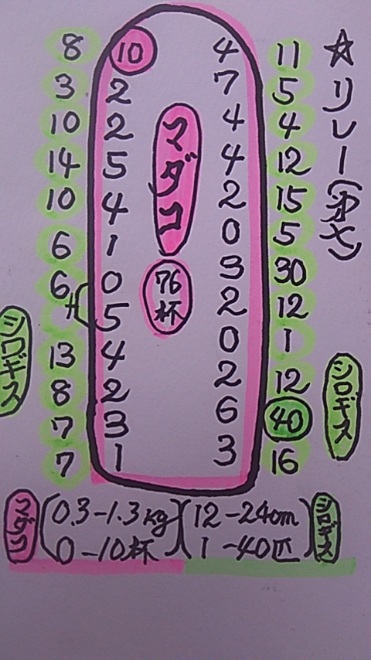 ☆リレー
8 10 4 11
3 2 7 5
10 2 4 4
14 5 4 12
10 4 2 15
6 1 0 5
6 0 3 30
5 2 12
13 4 0 1
8 2 2 12
7 3 6 40
7 1 3 16
マダコ
76杯
シロギス
シロギス
マダコ
0.3-1.3kg
0-10杯
12-24cm
1-40匹
シロギス